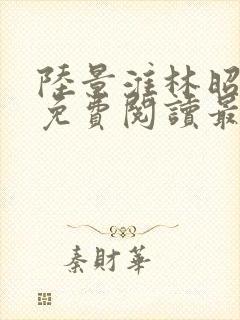 陸景淮林昭
免費閱讀最
秦財華